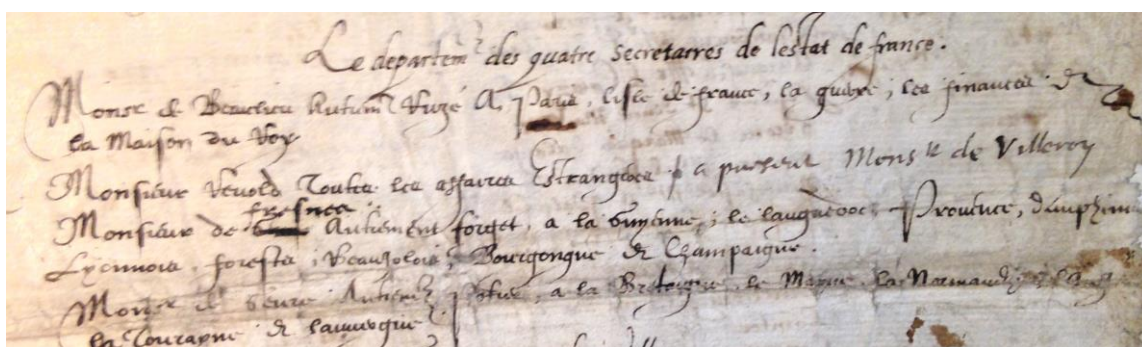 Le departem.t des quatre secretaires de lestat de france.
Monsr de Beaulieu Autrem.t Ruzé A, Paris, lisle de france, la guerre, les finances &
la Maison du Roy
Monsieur Revold Toutes les affaires Estrangeres a present Monsr de Villeroy
Monsieur de fresnes Autrement forget, a la Guyenne, le languedoc, Provence, dauphin
Lyonnois, forests, Beaujolois, Bourgongne & Champaigne.
Monsr de Gevre Autrem.t Potier, a la Bretaigne, le Mayne, la Normandie,
la Tourayne & lauvergne